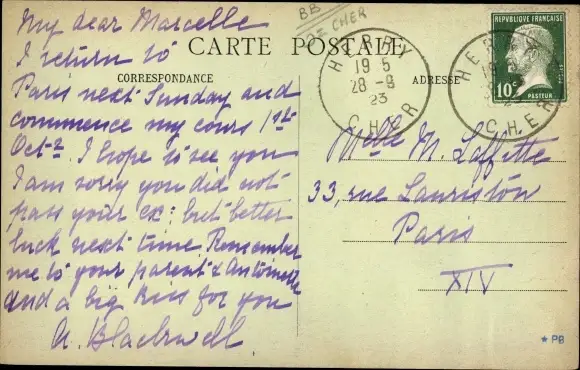 My dear Marcelle
I return to
Paris next Sunday and
commence my cours 1st
Oct-. I hope to see you
I am sorry you did not
pass your ex: but better
luck next time Remember
me to your parent & Antoinette
and a big kiss for you
A. Blackwell
BB
= CHER
CARTE POSTALE
CORRESPONDANCE
ADRESSE
HERRY
19 5
28-9
23
CHER
HERRY
19
23
CHER
RÉPUBLIQUE FRANÇAISE
10c
PASTEUR
POSTES
Melle M. Laffitte
33, rue Lauriston
Paris
XIV
* PB